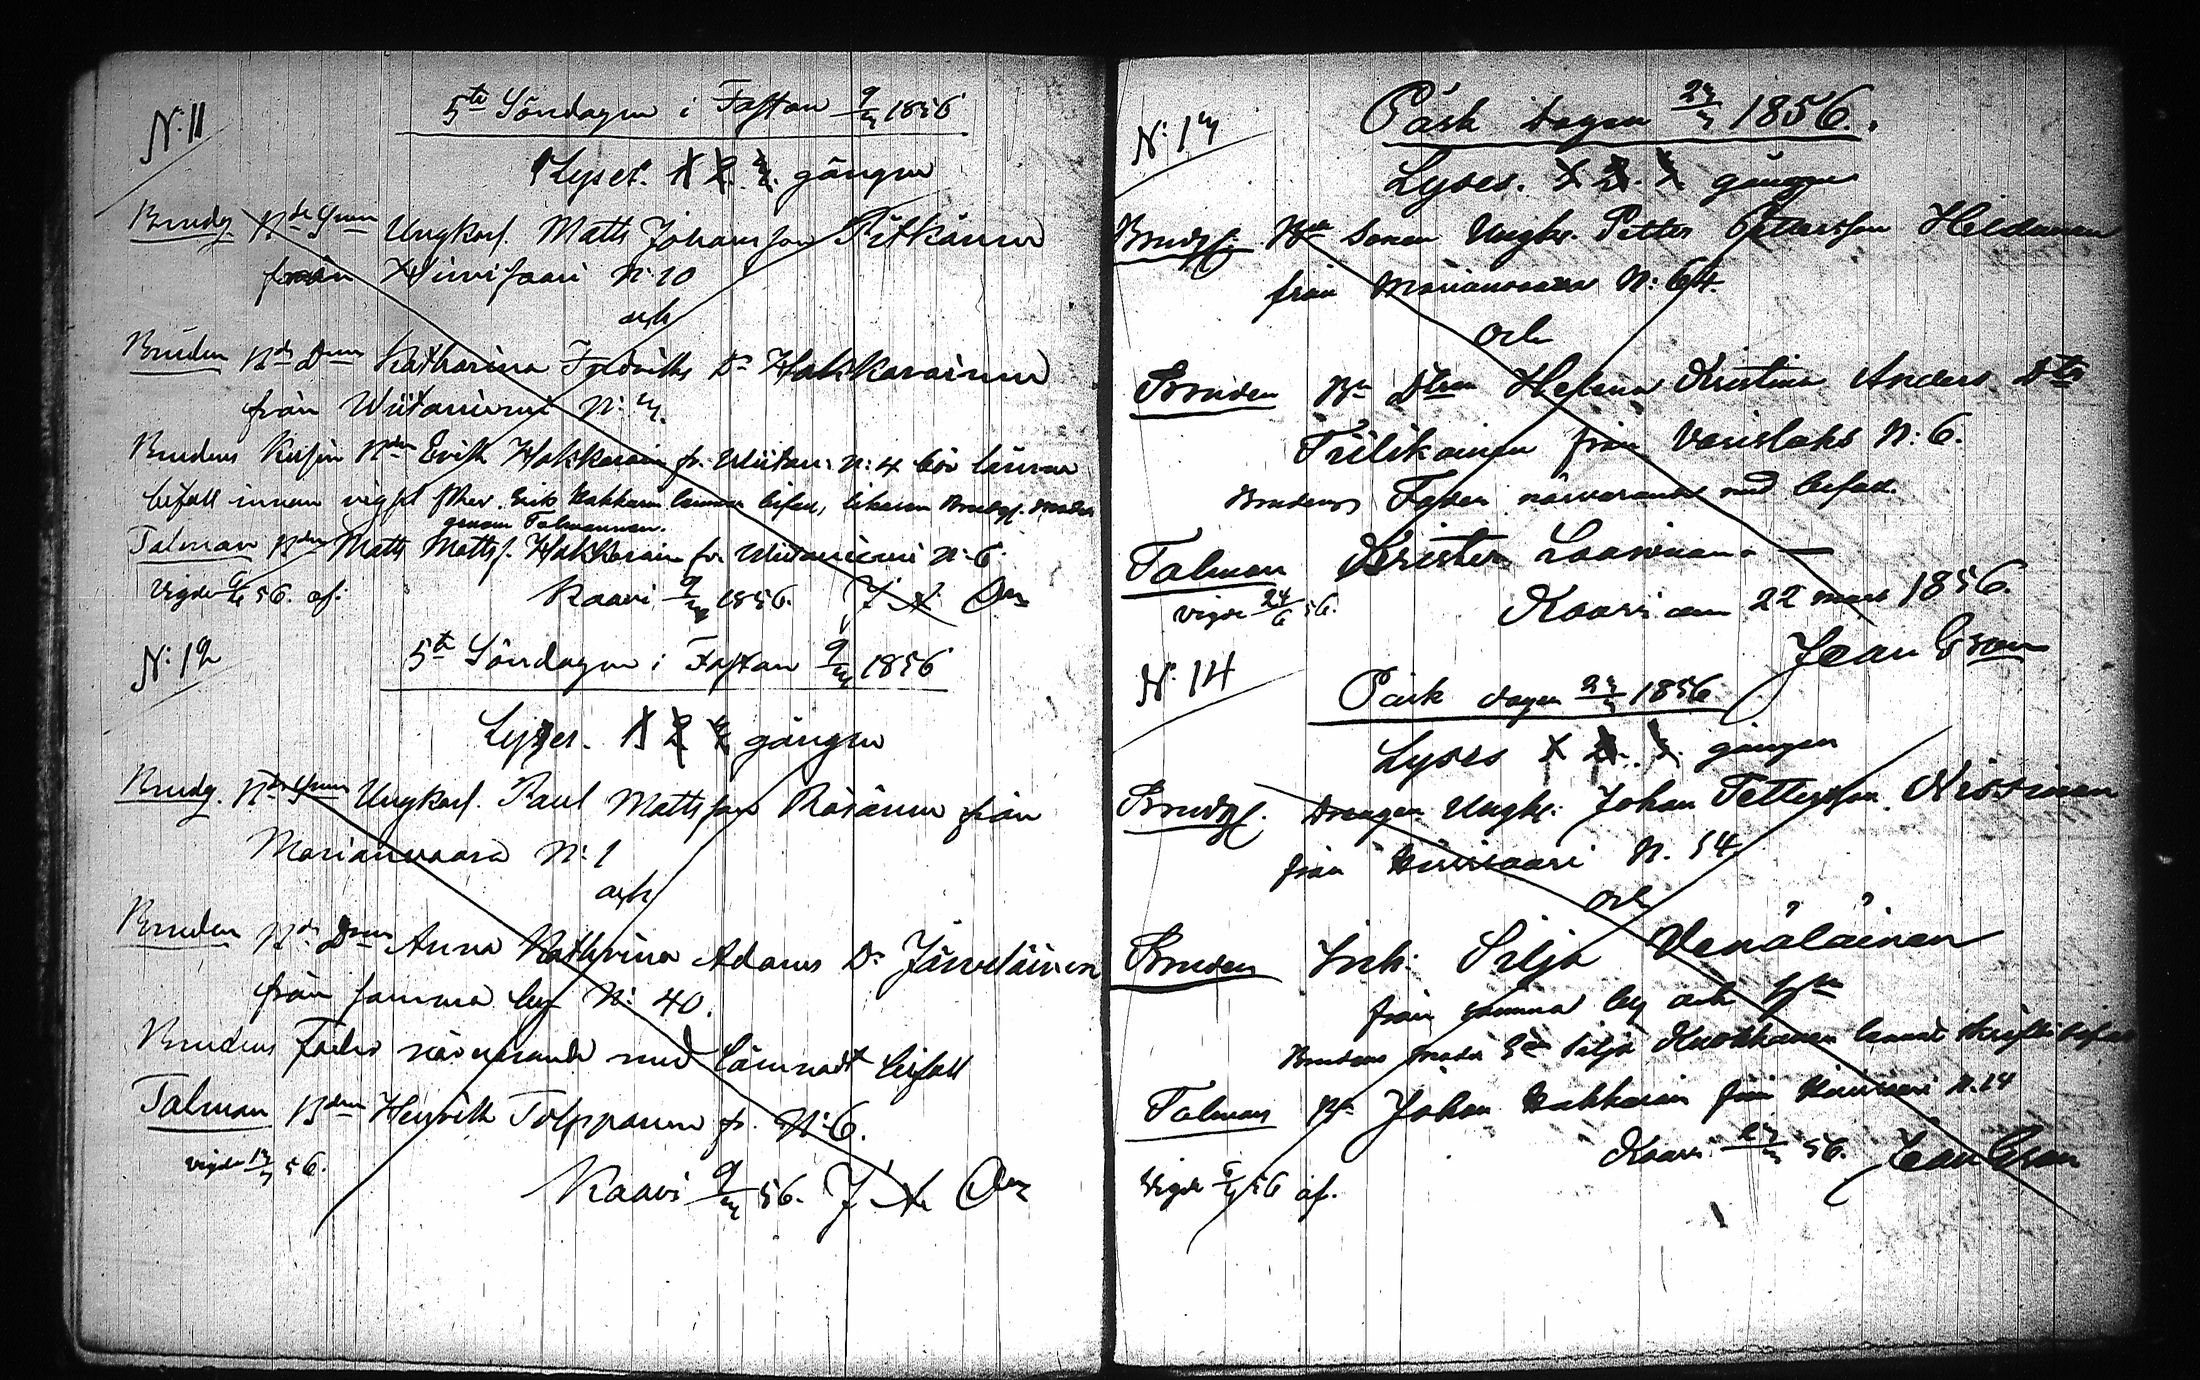 N:11
5te Söndagen i Fastan 9/3 1856
Lyses. 1. 2. 3. gången
Brudg. Bde Sonen Ungkarl. Matts Johansson Pitkänen
från Hirvisaari N:10
och
Bruden Bde Dttren Katharina Fredriks Dr Hakkarainen
från Wiitaniemi N:3.
Brudens Bdn Erik Hakkarain fr. Wiitan: N:4 bör lämna
bifall innan vigsel sker. Erik Hakkarain lemnar bifall, likasom Brudgs. moder
genom Talmannen.
Talman Bdn Matts Matts. Hakkarain fr. Wiitaniemi N:6.
Vigde 56. af:
Kaavi 9/3 1856.
N:12
5te Söndagen i Fastan 9/3 1856
Lyses. 1 2 3 gången
Brudg. Bde Sonen Ungkarl. Paul Mattsson Räsänen från
Marianvaara N:1
och
Bruden Bde Dttren Anna Kathrina Adams Dr Järveläinen
från samma by N:40.
Brudens Fader närvarande med lämnadt bifall
Talman Bden Henrik Tolppanen fr. N:6.
vigde 13/3 56.
Kaavi 9/3 56.
N:13
Påsk dagen 23/3 1856.
Lyses. 1. 2. 3. gången
Brudg. Bde Sonen Ungkr. Petter Pettersson Heldman
från Marianvaara N:64.
och
Bruden Bde Dtren Helena Kristina Anders Dtr
Tiilikainen från Varislaks N:6.
Brudens Fader närvarande med bifall.
Talman Krister Laavinen.
vigde 24/6 56.
Kaavi den 22 mars 1856.
Jean Gran
N:14
Påsk dagen 23/3 1856
Lyses 1 2. 3. gången
Brudg. Drengen Ungkr. Johan Pettersson Nissinen
från Hirvisaari N. 54
och
Bruden Inh: Silja Venäläinen
från samma by och
Brudens moder Silja Kuokkanen lemnat skriftl. bifall
Talman Bde Johan Hakkarain från Hirvisaari N.24
Kaavi 23/3 56. Jean Gran
Vigde 56 af.